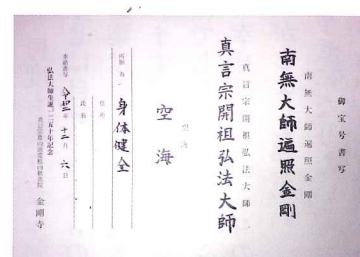 御宝号書写
南無大師遍照金剛
南無大師遍照金剛
真言宗開祖弘法大師
真言宗開祖弘法大師
空海
空海
所願 為
身体健全
住所
氏名
奉納書写 令和 年 十二月 六日
弘法大師生誕一二五十年記念
金剛寺